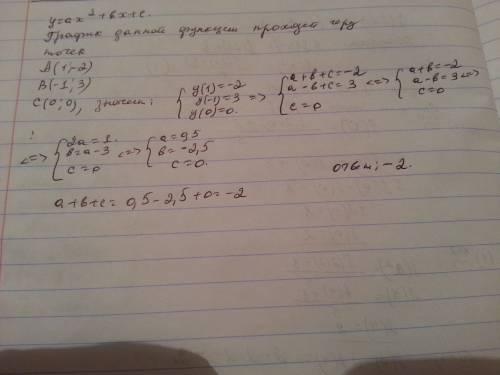 y=ax²+bx+c.
График данной функции проходит чрз
точек
A(1;-2)
B(-1;3)
C(0;0), значит: { y(1)=-2 y(-1)=3 y(0)=0. => { a+b+c=-2 a-b+c=3 c=0 <=> { a+b=-2 a-b=3 c=0 <=>
<=> { 2a=1. b=a-3 c=0 <=> { a=0,5 b=-2,5 c=0.
ответ: -2.
a+b+c= 0,5-2,5+0=-2